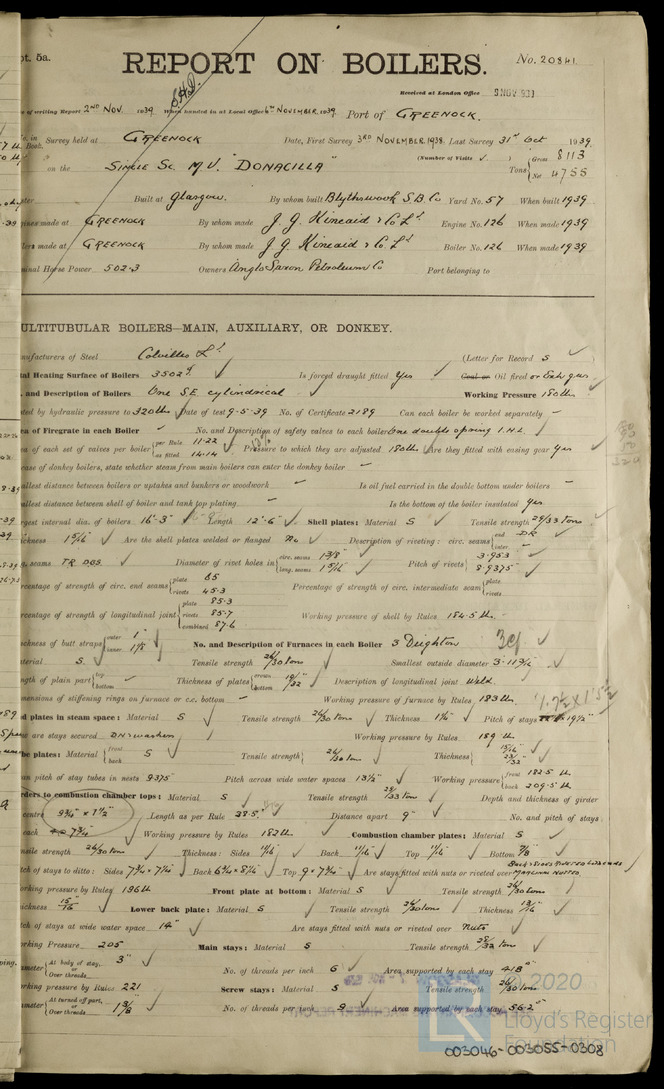 pt. 5a.
REPORT ON BOILERS.
No. 20841.
Received at London Office 9 NOV 1939
of writing Report 2ND NOV. 1939 When handed in at Local Office 6TH NOVEMBER 1939 Port of GREENOCK.
Survey held at GREENOCK Date, First Survey 3RD NOVEMBER, 1938. Last Survey 31st Oct 1939
on the SINGLE SC. M.V. "DONACILLA" (Number of Visits ) Tons Gross 8113 Net 4755
Built at Glasgow. By whom built Blythswood S.B. Co Yard No. 57 When built 1939
made at GREENOCK By whom made J. G. Kincaid & Co Ld Engine No. 126 When made 1939
made at GREENOCK By whom made J. G. Kincaid & Co Ld Boiler No. 126 When made 1939
Horse Power 502.3 Owners Anglo Saxon Petroleum Co Port belonging to
ULTITUBULAR BOILERS—MAIN, AUXILIARY, OR DONKEY.
nufacturers of Steel Colvilles Ld (Letter for Record S )
Heating Surface of Boilers 3502 Is forced draught fitted Yes Coal or Oil fired or Exh. gas
and Description of Boilers One S.E. cylindrical Working Pressure 180 lbs
ted by hydraulic pressure to 320 lbs Date of test 9-5-39 No. of Certificate 2189 Can each boiler be worked separately –
of Firegrate in each Boiler – No. and Description of safety valves to each boiler One double spring I.H.L.
of each set of valves per boiler per Rule 11.22 as fitted 14.14 Pressure to which they are adjusted 180 lbs Are they fitted with easing gear Yes
case of donkey boilers, state whether steam from main boilers can enter the donkey boiler –
allest distance between boilers or uptakes and bunkers or woodwork – Is oil fuel carried in the double bottom under boilers –
allest distance between shell of boiler and tank top plating – Is the bottom of the boiler insulated Yes
gest internal dia. of boilers 16'-3" Length 12'-6" Shell plates: Material S Tensile strength 29/33 tons
ickness 1 5/16 Are the shell plates welded or flanged No Description of riveting: circ. seams end DR inter. –
seams TR. DBS. Diameter of rivet holes in circ. seams 1 3/8" long. seams 1 5/16" Pitch of rivets 3.953 8.9375
rcentage of strength of circ. end seams plate 65 rivets 45.3 Percentage of strength of circ. intermediate seam plate rivets
rcentage of strength of longitudinal joint plate 85.3 rivets 85.7 combined 87.6 Working pressure of shell by Rules 184.5 lb.
ickness of butt straps outer 1" inner 1 1/8 No. and Description of Furnaces in each Boiler 3 Deighton
terial S. Tensile strength 26/30 tons Smallest outside diameter 3'-11 3/4"
ngth of plain part top bottom Thickness of plates crown bottom 19/32 Description of longitudinal joint Weld.
mensions of stiffening rings on furnace or c.c. bottom – Working pressure of furnace by Rules 183 lb.
d plates in steam space: Material S Tensile strength 26/30 tons Thickness Pitch of stays
are stays secured DN: washers Working pressure by Rules 189 lb
be plates: Material front back S Tensile strength 26/30 tons Thickness 13/16" 23/32"
an pitch of stay tubes in nests 9.375 Pitch across wide water spaces 13 1/2" Working pressure front 182.5 lb back 209.5 lb
rders to combustion chamber tops: Material S Tensile strength 28/33 tons Depth and thickness of girder
centre 9 3/4" x 1 1/2" Length as per Rule 38.5" Distance apart 9" No. and pitch of stays
each 7 3/4" Working pressure by Rules 182 lb Combustion chamber plates: Material S
nsile strength 26/30 tons Thickness: Sides 11/16 Back 11/16 Top 11/16 Bottom 7/8
tch of stays to ditto: Sides 7 3/4 x 7 3/4 Back 6 3/4 x 8 1/2 Top 9 x 7 3/4 Are stays fitted with nuts or riveted over
rking pressure by Rules 196 lb Front plate at bottom: Material S Tensile strength 26/30 tons
ickness 15/16 Lower back plate: Material S Tensile strength 26/30 tons Thickness 13/16
tch of stays at wide water space 14" Are stays fitted with nuts or riveted over Nuts
rking Pressure 205 Main stays: Material S Tensile strength 28/32 ton
ameter At body of stay, or Over threads 3" No. of threads per inch 6 Area supported by each stay 418"
rking pressure by Rules 221 Screw stays: Material S Tensile strength 26/30 tons
ameter At turned off part, or Over threads 1 5/8" No. of threads per inch 9 Area supported by each stay 56.2"
2020
Lloyd's Register
Foundation
003046-003055-0308